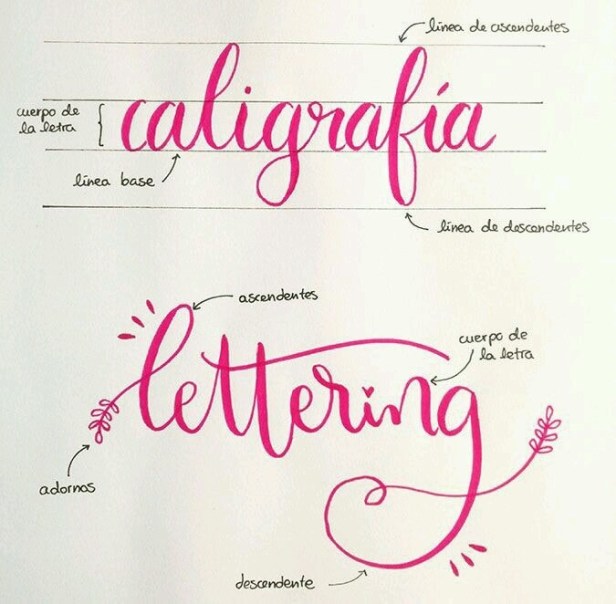 línea de ascendentes
caligrafía
cuerpo de
la letra
línea base
línea de descendentes
ascendentes
lettering
cuerpo de
la letra
adornos
descendente